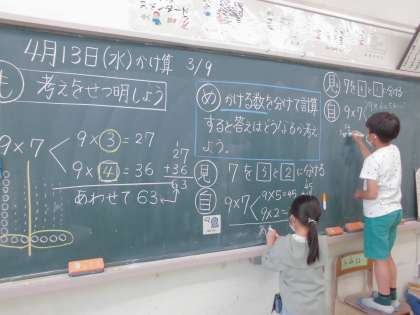 4月13日(水)かけ算 3/9
も 考えをせつ明しよう
9×7 9×3=27
9×4=36
あわせて63
27
+36
63
め かける数を分けて計算
すると答えはどうなるか考え
よう。
見 7を3と2に分ける
自 9×7 9×5=45
9×2=
45
見 7を
に分ける
自 9×7